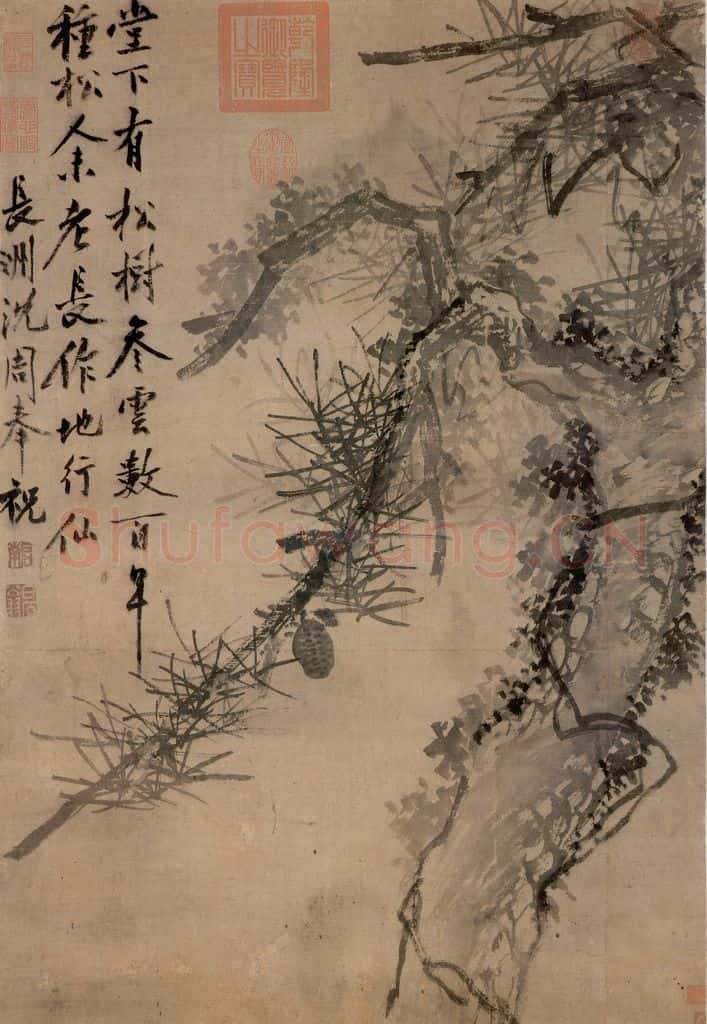 堂下有松樹參雲數百年
種松人未老長作地行仙
長洲沈周奉祝
乾隆御覽之寶
Shufawang.CN